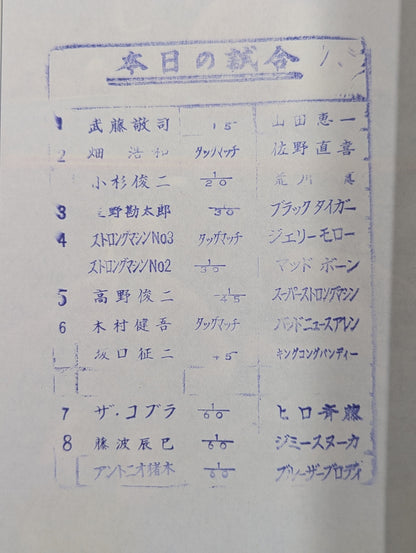 本日の試合
1 武藤敬司 15 山田恵一
2 畑浩和 タッグマッチ 佐野直喜
小杉俊二 1/20 荒川真
3 野勘太郎 30 ブラックタイガー
4 ストロングマシンNo3 タッグマッチ ジェリーモロー
ストロングマシンNo2 1/30 マッドボーン
5 高野俊二 45 スーパーストロングマシン
6 木村健吾 タッグマッチ バッドニュースアレン
坂口征二 45 キングコングバンディー
7 ザ・コブラ 1/60 ヒロ斉藤
8 藤波辰巳 1/60 ジミースヌーカ
アントニオ猪木 1/60 ブルーザーブロディ